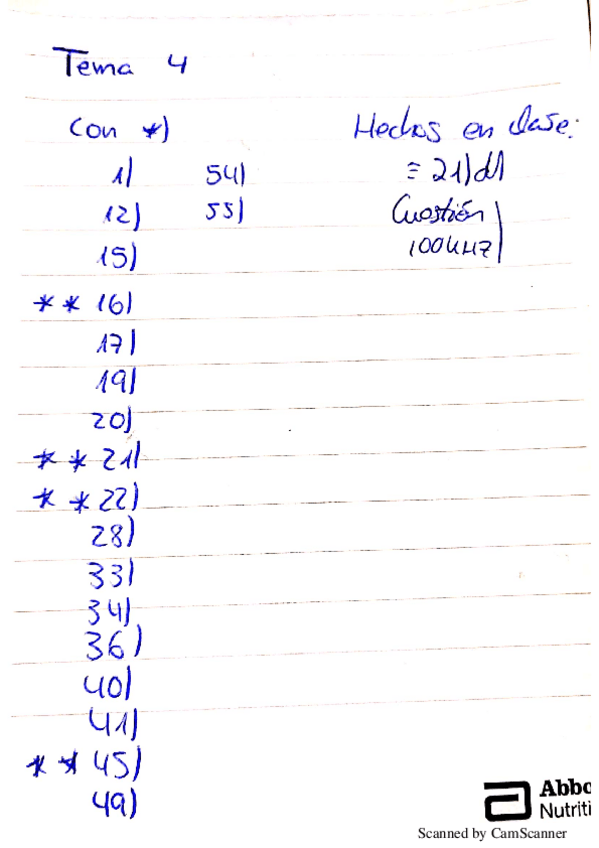 Tema 4
Con *)
1) 54)
12) 55)
15)
** 16)
17)
19)
20)
** 21)
** 22)
28)
33)
34)
36)
40)
41)
** 45)
49)
Hechos en clase:
≡ 21)d)
Cuestión
100kHz
Abbo
Nutriti
Scanned by CamScanner